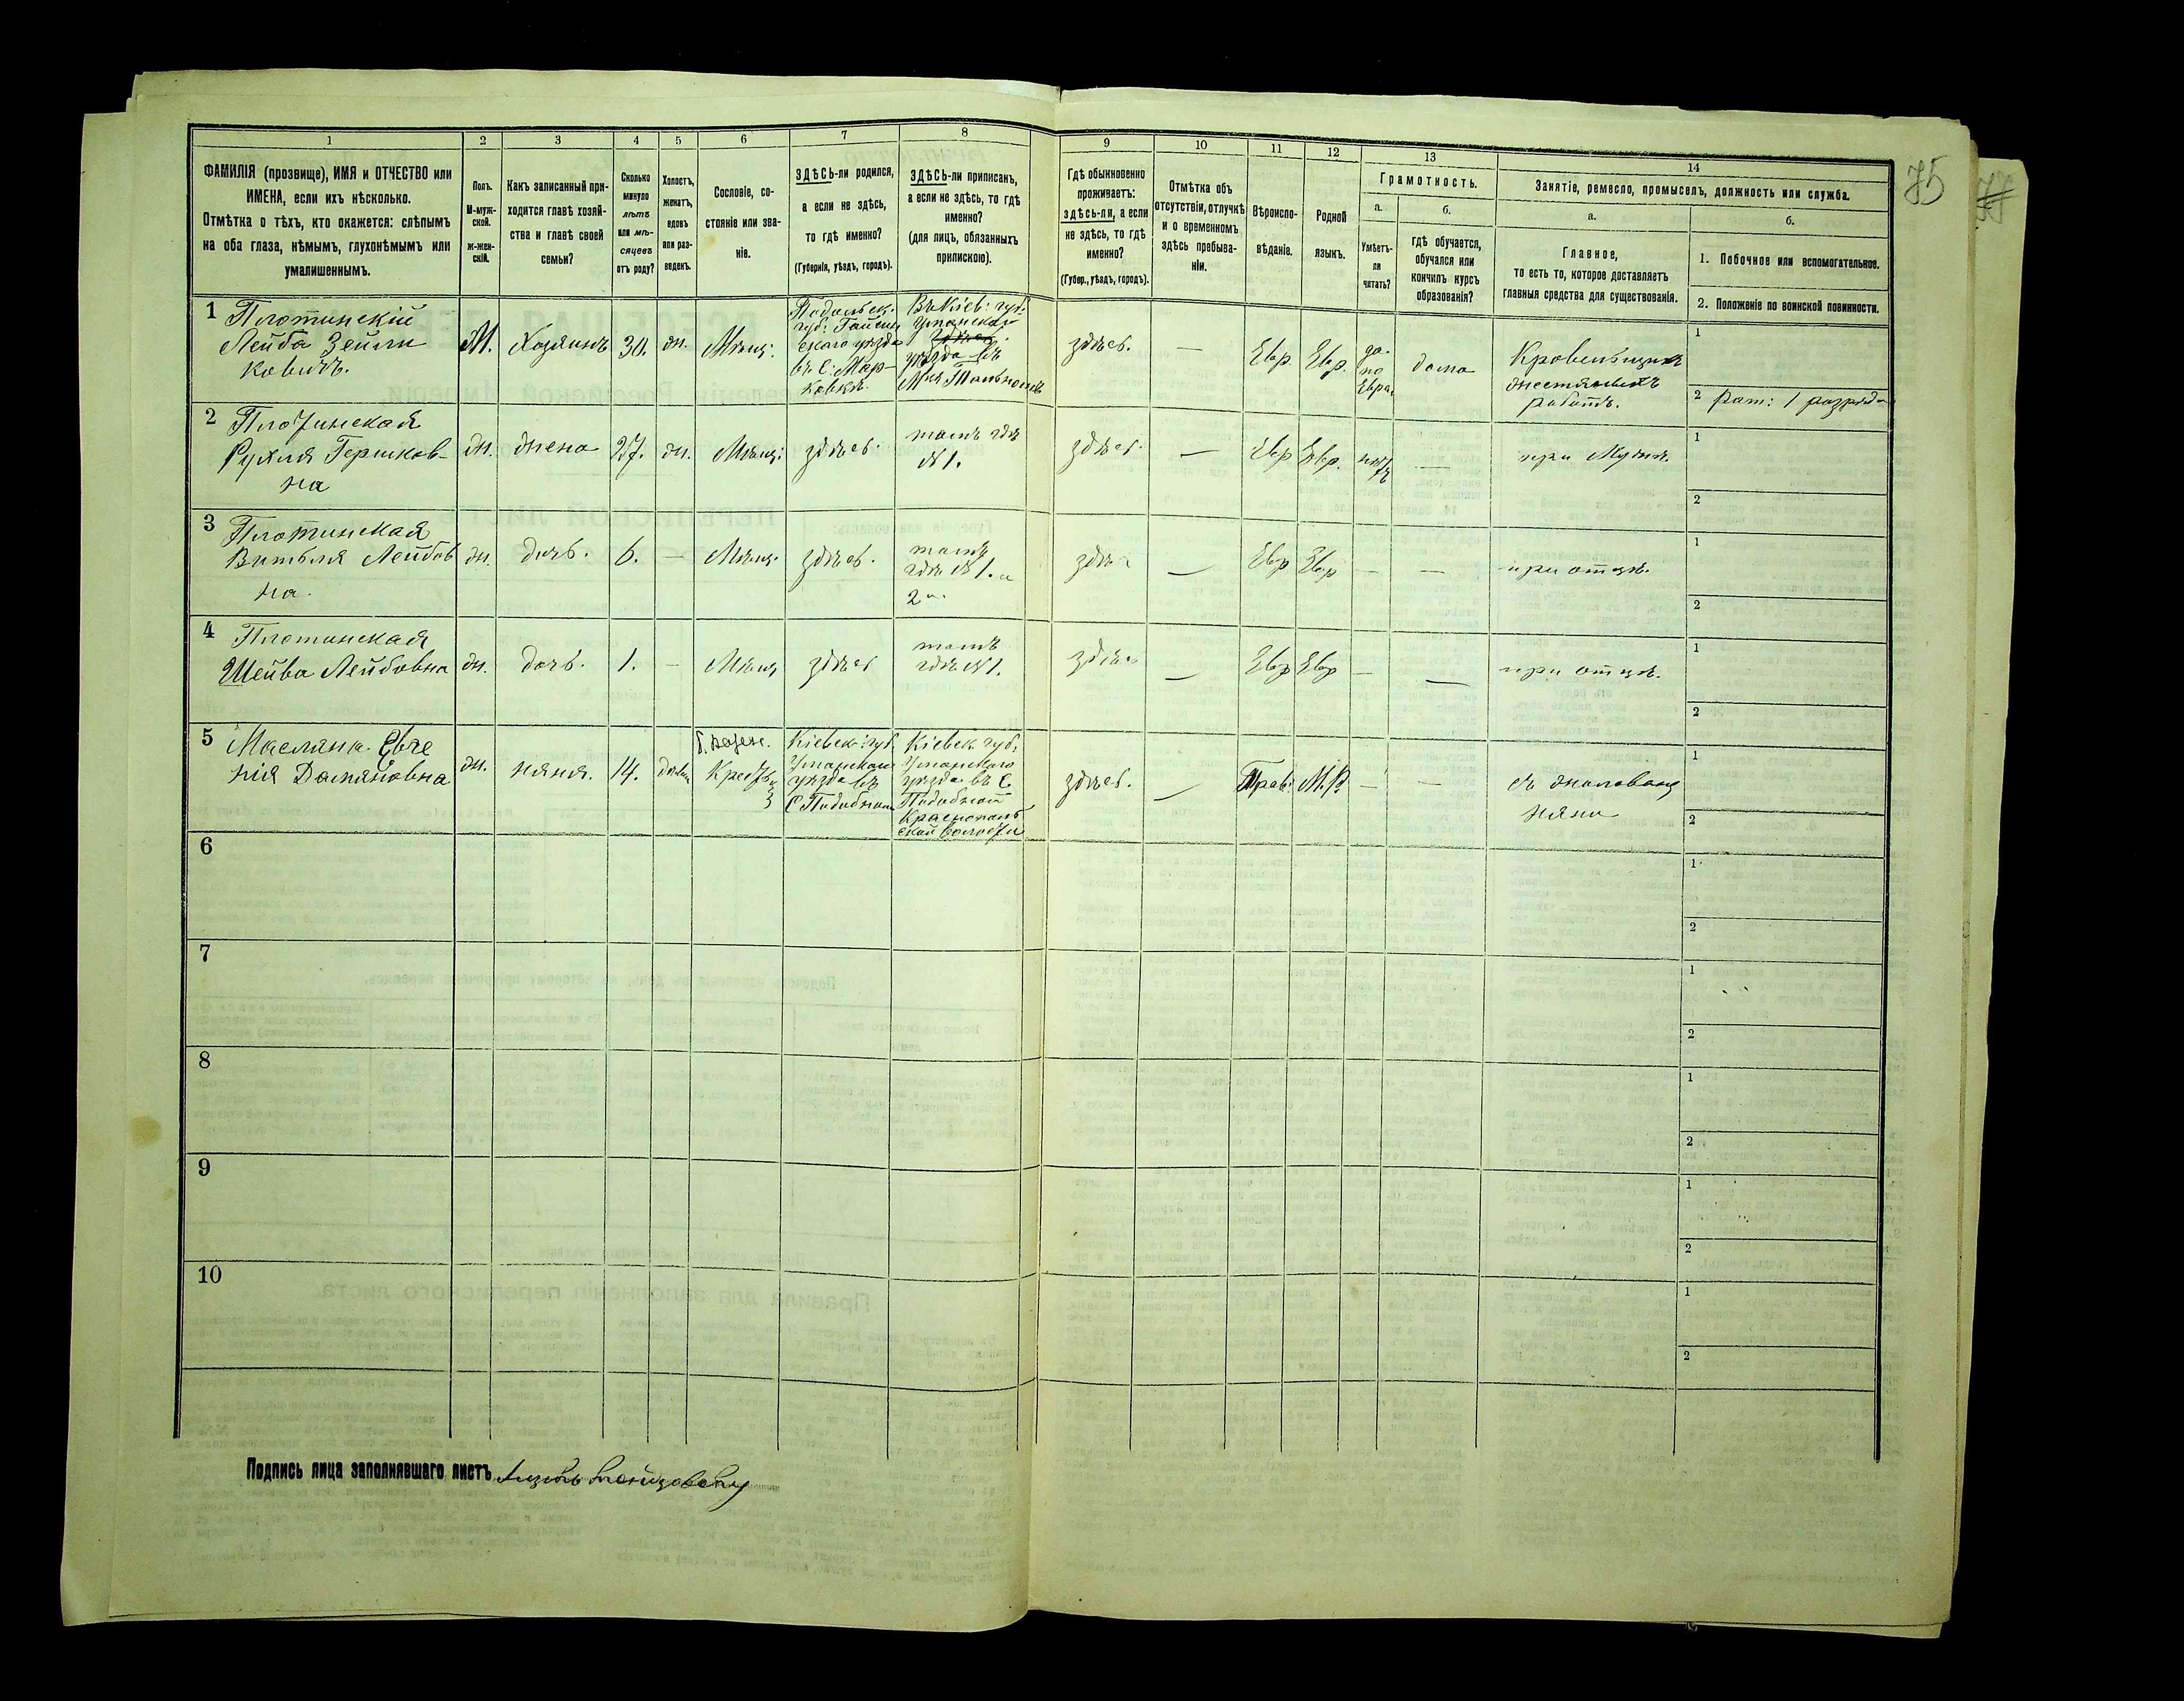 75
1 2 3 4 5 6 7 8 9 10 11 12 13 14
ФАМИЛІЯ (прозвище), ИМЯ и ОТЧЕСТВО или
ИМЕНА, если ихъ нѣсколько.
Отмѣтка о тѣхъ, кто окажется: слѣпымъ
на оба глаза, нѣмымъ, глухонѣмымъ или
умалишеннымъ.
Полъ.
М-муж-
ской.
Ж-жен-
скій.
Какъ записанный при-
ходится главѣ хозяй-
ства и главѣ своей
семьи?
Сколько
минуло
лѣтъ
или мѣ-
сяцевъ
отъ роду?
Холостъ,
женатъ,
вдовъ
или раз-
веденъ.
Сословіе, со-
стояніе или зва-
ніе.
ЗДѢСЬ-ли родился,
а если не здѣсь,
то гдѣ именно?
(Губернія, уѣздъ, городъ).
ЗДѢСЬ-ли приписанъ,
а если не здѣсь, то гдѣ
именно?
(для лицъ, обязанныхъ
припискою).
Гдѣ обыкновенно
проживаетъ:
здѣсь-ли, а если
не здѣсь, то гдѣ
именно?
(Губер., уѣздъ, городъ).
Отмѣтка объ
отсутствіи, отлучкѣ
и о временномъ
здѣсь пребыва-
ніи.
Вѣроиспо-
вѣданіе.
Родной
языкъ.
Грамотность.
а.
Умѣетъ-
ли
читать?
б.
гдѣ обучается,
обучался или
кончилъ курсъ
образованія?
Занятіе, ремесло, промыселъ, должность или служба.
а.
Главное,
то есть то, которое доставляетъ
главныя средства для существованія.
б.
1. Побочное или вспомогательное.
2. Положеніе по воинской повинности.
1 Плотинскій
Лейба Зейли
ковичъ.
М.
Хозяинъ
30.
ж.
Мѣщ.
Подольск.
губ: Гайсин
скаго уѣзда
въ С. Мар-
ковкѣ.
Въ Кіев: губ.
Уманскаго
уѣзда въ
здѣсь.
—
Евр.
Евр.
да.
по
Евр.
дома
Кровельщикъ
жестяныхъ
работъ.
1
2 рат: 1 разряда
2 Плотинская
Рухля Гершков-
на
ж.
жена
27.
ж.
Мѣщ:
здѣсь.
тамъ гдѣ
№ 1.
здѣсь.
—
Евр
Евр.
нѣтъ
—
при Мужѣ.
1
2
3 Плотинская
Витля Лейбов
на.
ж.
дочь.
6.
—
Мѣщ.
здѣсь.
тамъ
гдѣ № 1. и
2
здѣсь
—
Евр
Евр
—
—
при отцѣ.
1
2
4 Плотинская
Шейва Лейбовна
ж.
дочь.
1.
—
Мѣщ
здѣсь
тамъ
гдѣ № 1.
здѣсь
—
Евр
Евр
—
—
при отцѣ.
1
2
5 Масляна Евге
нія Дамяновна
ж.
няня.
14.
Кіевск: губ.
Уманскаго
уѣзда въ
СПодобной
Кіевск. губ.
Уманскаго
уѣзда въ С
Подобной
Краснополь
ской волости
здѣсь.
—
Прав:
М.Р.
—
—
няни
1
2
6
1
2
7
1
2
8
1
2
9
1
2
10
1
2
Подпись лица заполнявшаго листъ